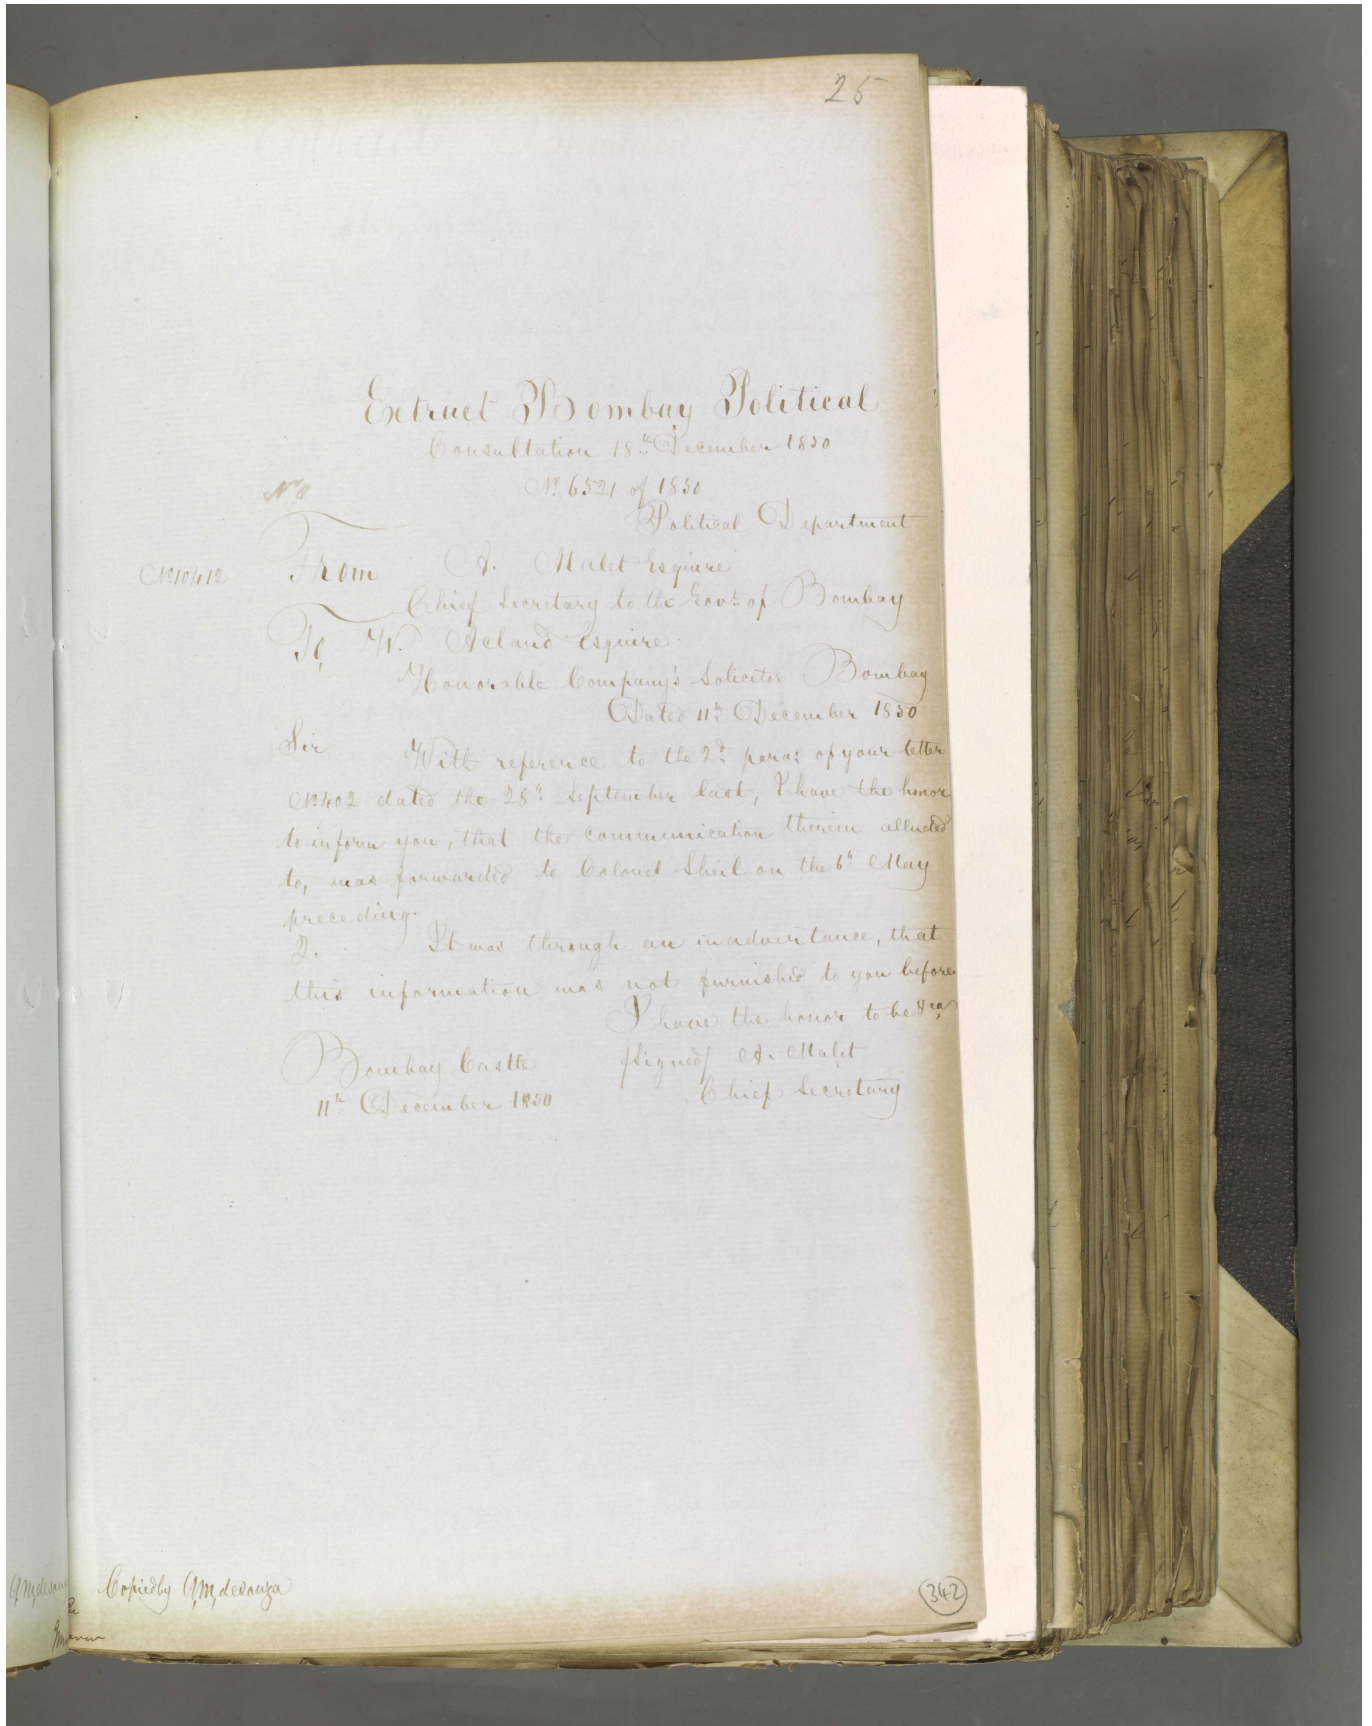 25
Extract Bombay Political
Consultation 18th December 1850
No 8
No. 6521 of 1850
Political Department
No 10412
From A. Malet Esquire
Chief Secretary to the Govt. of Bombay
To, W. Acland Esquire
Honorable Company's Solicitor Bombay
Dated 11th December 1850
Sir With reference to the 2d. para: of your letter
No 402 dated the 28th September last, I have the honor
to inform you, that the communication therein alluded
to, was forwarded to Colonel Sheil on the 6th May
preceding.
2. It was through an inadvertance, that
this information was not furnished to you before
I have the honor to be &ca
Bombay Castle (signed) A. Malet
11th December 1850 Chief Secretary
Copied by
342